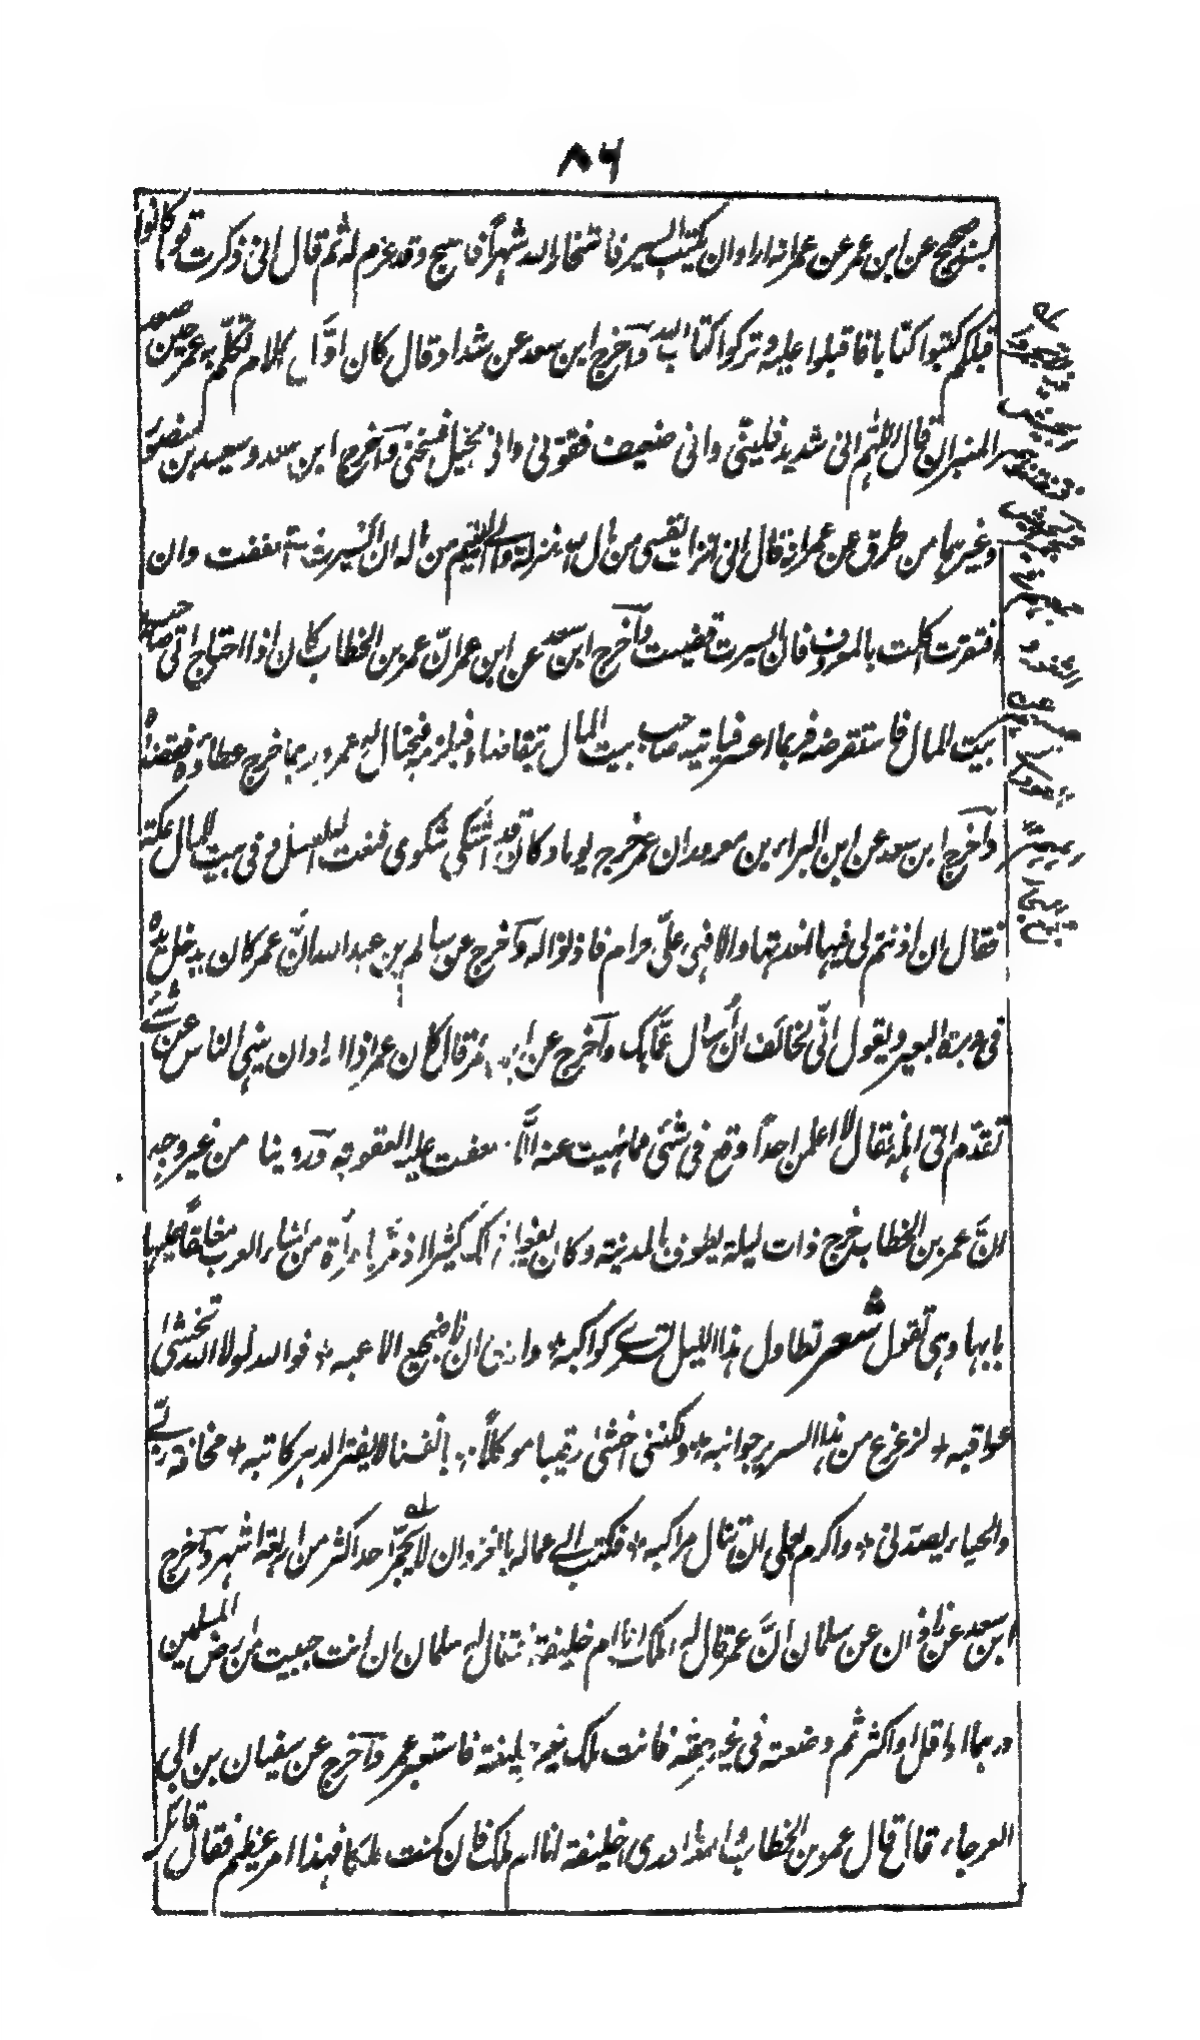 ٨٦
بسند صحيح عن ابن عمر عن عمر انه اراد ان يكتب السير فاستخار الله شهراً فاصبح وقد عزم له ثم قال انى ذكرت قوما كانوا
قبلكم كتبوا كتابا فاقبلوا عليه وتركوا كتاب الله وآخرج ابن سعد عن شداد قال كان اوّل كلام تكلّم به عمر حين صعد
المنبر ان قال اللّهم انى شديد فلينّى وانى ضعيف فقونى وانى بخيل فسخنى وآخرج ابن سعد وسعيد بن منصور
وغيرهما من طرق عن عمر انه قال انى انزلت نفسى من مال الله بمنزلة والى اليتيم من ماله ان ايسرت استعففت وان
افتقرت اكلت بالمعروف فان ايسرت قضيت وآخرج ابن سعد عن ابن عمر انّ عمر بن الخطاب كان اذا احتاج اتى صاحب
بيت المال فاستقرضه فربما اعسر فياتيه صاحب بيت المال يتقاضاه فيلزمه فيحتال له عمر وربما خرج عطاؤه فقضاه
وآخرج ابن سعد عن ابن البراء بن معرور ان عمر خرج يوما وكان قد اشتكى شكوى فنعت له العسل وفى بيت المال عكة
فقال ان اذنتم لى فيها اخذتها والا فهى علىّ حرام فاذنوا له وآخرج عن سالم بن عبد الله انّ عمر كان يدخل يده
فى دبرة البعير ويقول انّى لخائف ان أسأل عمّا بك وآخرج عن ابن عمر قال كان عمر اذا اراد ان ينهى الناس عن شئ
تقدّم الى اهله فقال لا اعلمن احداً وقع فى شئ مما نهيت عنه الّا اضعفت عليه العقوبة وروينا من غير وجه
انّ عمر بن الخطاب خرج ذات ليلة يطوف بالمدينة وكان يفعل ذلك كثيرا اذ مرّ بامرأة من نساء العرب مغلقاً عليها
بابها وهى تقول شعر تطاول هذا الليل تسرى كواكبه + وارقنى ان لا ضجيع الاعبه + فوالله لولا الله تخشى
عواقبه + لزعزع من هذا السرير جوانبه + ولكننى اخشى رقيبا موكلاً + بانفسنا لا يفتر الدهر كاتبه + مخافة ربى
والحياء يصدنى + واكرم بعلى ان تنال مراكبه + فكتب الى عماله بالغزو ان لا يجمّر احد اكثر من اربعة اشهر وآخرج
ابن سعد عن زاذان عن سلمان انّ عمر قال له املك انا ام خليفة فقال له سلمان ان انت جبيت من ارض المسلمين
درهما او اقل او اكثر ثم وضعته فى غير حقه فانت ملك غير خليفة فاستعبر عمر وآخرج عن سفيان بن ابى
العرجاء قال قال عمر بن الخطاب والله ما ادرى اخليفة انا ام ملك فان كنت ملكا فهذا امر عظيم فقال قائل